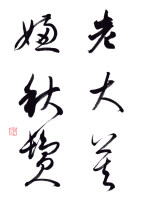 老大莫
嫌秋鬢